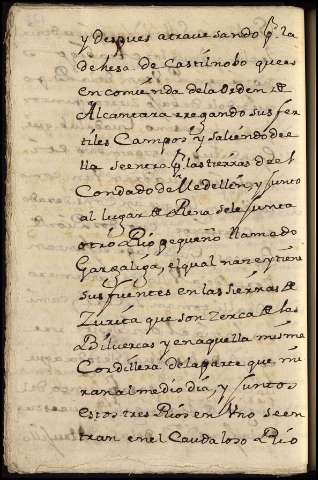 y despues atrauesando pr. la
dehesa de Castilnobo que es
encomienda dela Orden de
Alcantara e regando sus fer
tiles Campos y saliendo de e
lla se entra pr. las tierras de el
Condado de Medellin, y junto
al lugar de Rena se le junta
otro Rio pequeño llamado
Gargaliga, el qual naze y tiene
sus fuentes en las sierras de
Zurita que son zerca de las
Biluercas y en aquella misma
Cordillera de la parte que mi
ran al medio dia, y juntos
estos tres Rios en Vno se en
tran en el Caudaloso Rio